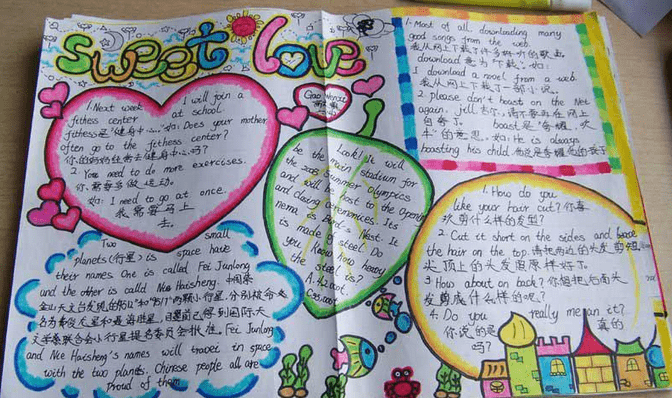 Sweet Love
1. Next week I will join a
fitness center at school
fitness是"健身中心" 如: Does your mother
often go to the fitness center?
你的妈妈经常去健身中心吗?
2. You need to do more exercises.
你需要多做运动。
如: I need to go at once.
我需要马上
去。
Look! It will
be the main stadium for
the 2008 Summer Olympics
and will be host to the Opening
and closing ceremonies. Its
name is Bird's Nest. It
is made of steel. Do
you know how heavy
the steel is?
A. 42,000t.
1. Most of all downloading many
good songs from the web.
我从网上下载了许多好听的歌曲
download 意为"下载". 如:
I download a novel from a web.
我从网上下载了一部小说。
2. please don't boast on the Net
again. jill 去尔, 请不要再在网上
自夸了. boast是"夸耀, 吹
牛"的意思. 如: He is always
boasting his child.
Two small
planets (行星) in space have
their names One is called Fei Junlong
and the other is called Nie Haisheng. 中国紫
金山天文台发现的 两颗小行星, 分别被命
名为费俊龙星和聂海胜星,
文学联合会小行星提名委员会批准. Fei Junlong
and Nie Haisheng's names will travel in space
with the two plants. Chinese people all are
proud of them
1. How do you
like your hair cut? 你喜
欢剪什么样的发型?
2. Cut it short on the sides and
the hair on the top. 请把两边的头发剪短,
头顶上的头发照原样好了.
3 How about on back? 你想把后面头
发剪成什么样的呢?
4. Do you really mean it?
你说的是 真的
吗?